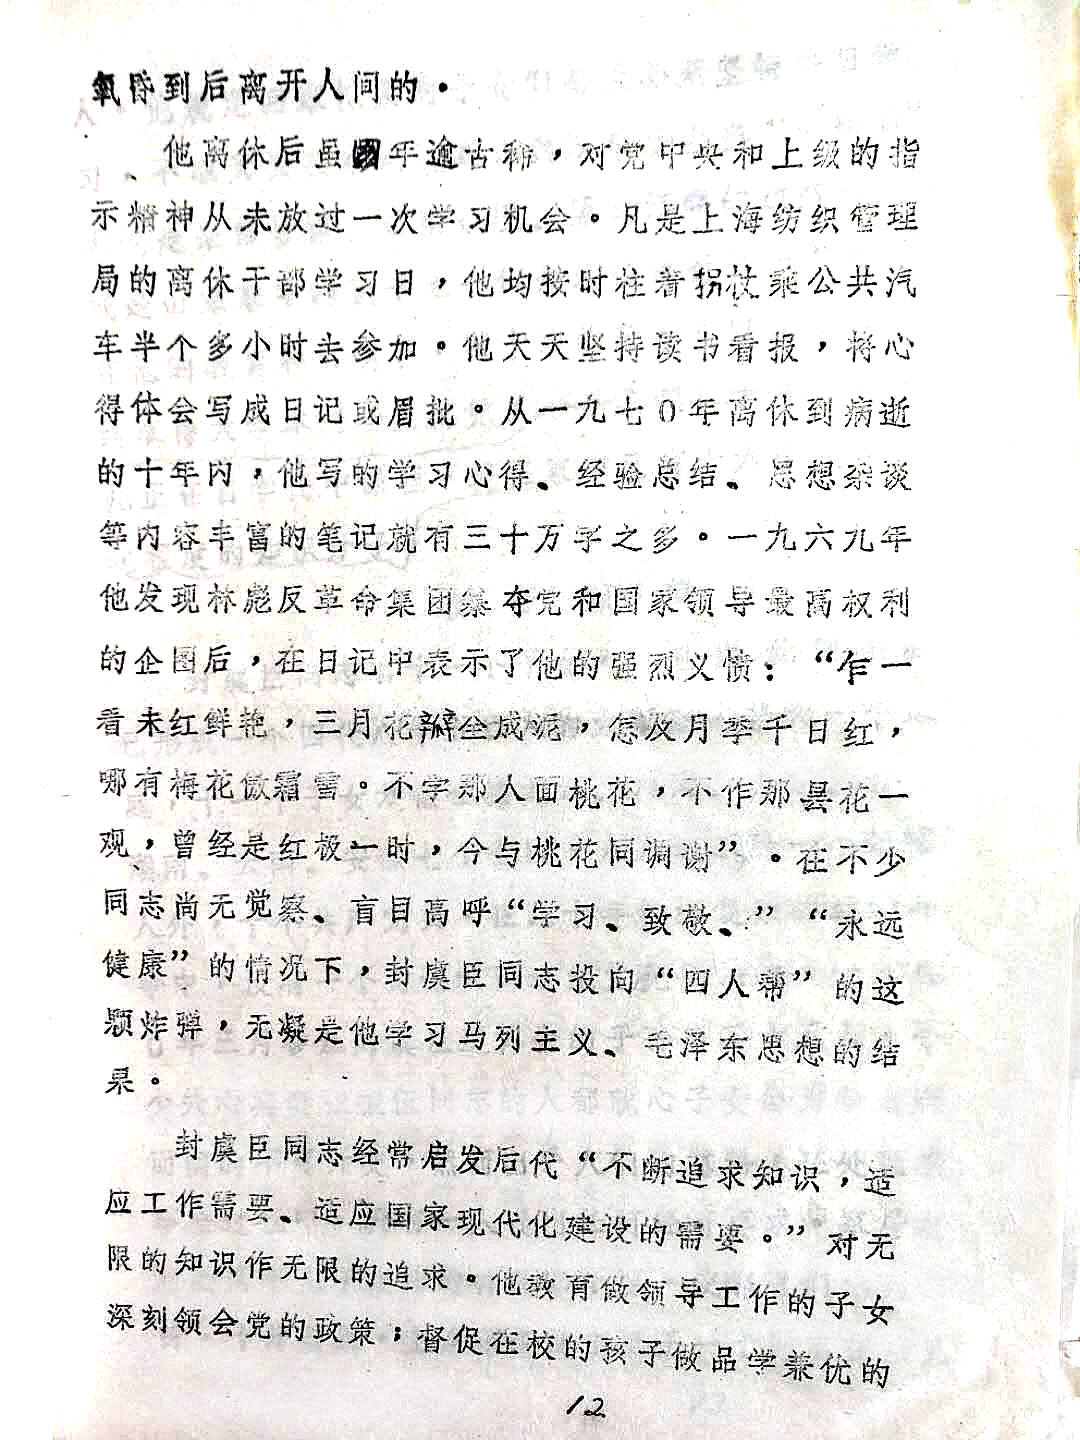 氧昏到后离开人间的。
他离休后虽年逾古稀，对党中央和上级的指
示精神从未放过一次学习机会。凡是上海纺织管理
局的离休干部学习日，他均按时柱着拐杖乘公共汽
车半个多小时去参加。他天天坚持读书看报，将心
得体会写成日记或眉批。从一九七0年离休到病逝
的十年内，他写的学习心得、经验总结、思想杂谈
等内容丰富的笔记就有三十万字之多。一九六九年
他发现林彪反革命集团纂夺党和国家领导最高权利
的企图后，在日记中表示了他的强烈义愤：“乍一
看未红鲜艳，三月花瓣全成泥，怎及月季千日红，
哪有梅花傲霜雪。不学那人面桃花，不作那昙花一
观，曾经是红极一时，今与桃花同调谢”。在不少
同志尚无觉察、盲目高呼“学习、致敬、”“永远
健康”的情况下，封虞臣同志投向“四人帮”的这
颗炸弹，无凝是他学习马列主义、毛泽东思想的结
果。
封虞臣同志经常启发后代“不断追求知识，适
应工作需要、适应国家现代化建设的需要。”对无
限的知识作无限的追求。他教育做领导工作的子女
深刻领会党的政策；督促在校的孩子做品学兼优的
12